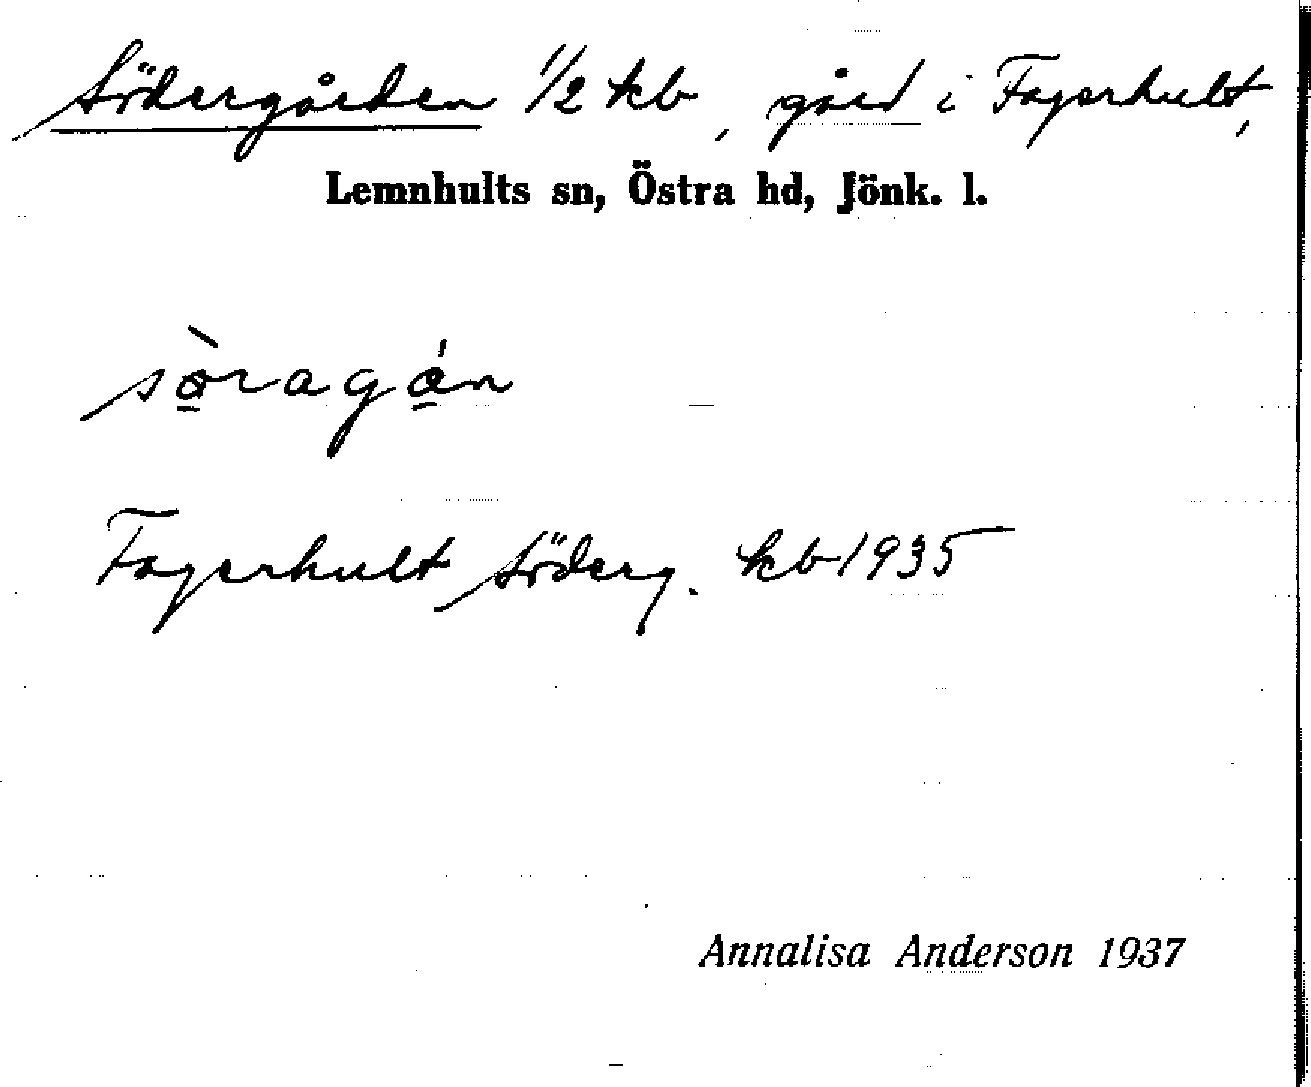 Södergården 1/2 kb, gård i Fagerhult,
Lemnhults sn, Östra hd, Jönk. l.
sø̱̀ragá̱n
Fagerhult Söderg. kb 1935
Annalisa Anderson 1937